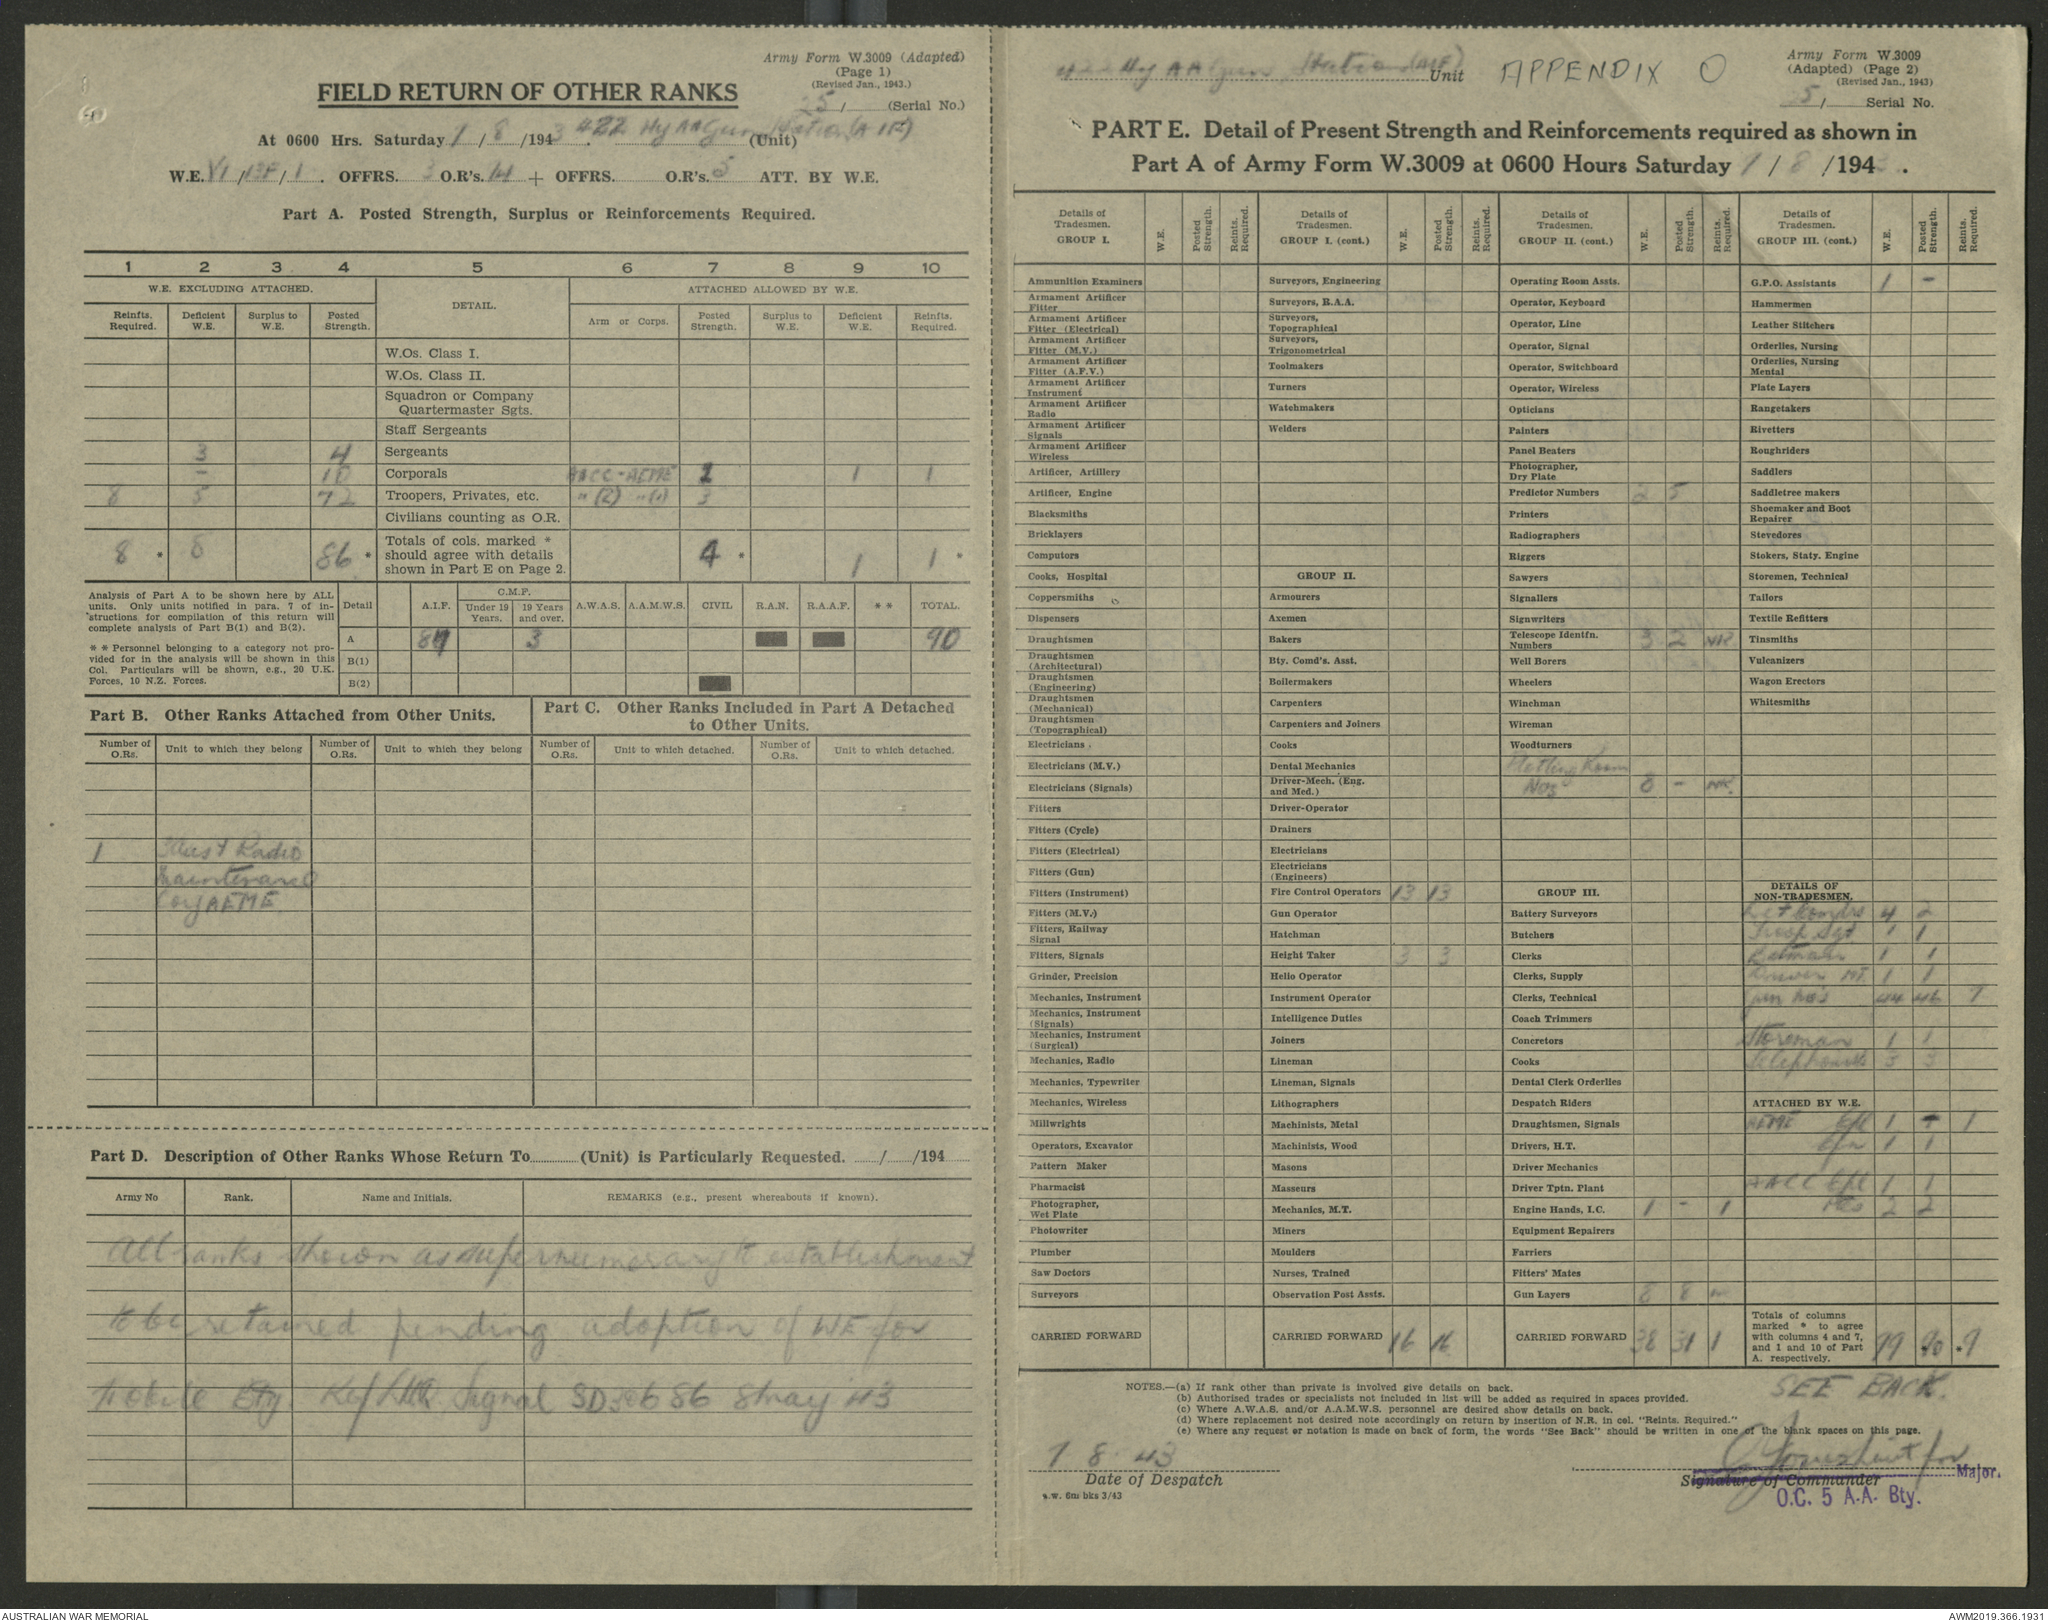 Army Form W.3009 (Adapted)
(Page 1)
(Revised Jan., 1943.)
FIELD RETURN OF OTHER RANKS
25/ (Serial No.)
At 0600 Hrs. Saturday / 8 /1943. 422 Hy AA Gun Station (AIF) (Unit)
W.E. VI / / 1. OFFRS. 3 O.R's. + OFFRS. O.R's. 5 ATT. BY W.E.
Part A. Posted Strength, Surplus or Reinforcements Required.
1 2 3 4 5 6 7 8 9 10
W.E. EXCLUDING ATTACHED. DETAIL. ATTACHED ALLOWED BY W.E.
Reinfts. Required. Deficient W.E. Surplus to W.E. Posted Strength. Arm or Corps. Posted Strength. Surplus to W.E. Deficient W.E. Reinfts. Required.
W.Os. Class I.
W.Os. Class II.
Squadron or Company
Quartermaster Sgts.
Staff Sergeants
3 4 Sergeants
– 10 Corporals AACC-AEME 1 1 1
8 5 72 Troopers, Privates, etc. " (2) " (1) 3
Civilians counting as O.R.
8 * 8 86 * Totals of cols. marked * should agree with details shown in Part E on Page 2. 4 * 1 1 *
Analysis of Part A to be shown here by ALL
units. Only units notified in para. 7 of in-
structions for compilation of this return will
complete analysis of Part B(1) and B(2).
* * Personnel belonging to a category not pro-
vided for in the analysis will be shown in this
Col. Particulars will be shown, e.g., 20 U.K.
Forces, 10 N.Z. Forces.
Detail A.I.F. C.M.F. Under 19 Years. 19 Years and over. A.W.A.S. A.A.M.W.S. CIVIL R.A.N. R.A.A.F. * * TOTAL.
A 87 3 90
B(1)
B(2)
Part B. Other Ranks Attached from Other Units.
Part C. Other Ranks Included in Part A Detached
to Other Units.
Number of O.Rs. Unit to which they belong Number of O.Rs. Unit to which they belong Number of O.Rs. Unit to which detached. Number of O.Rs. Unit to which detached.
1 Aust Radio
Maintenance
Coy AEME
Part D. Description of Other Ranks Whose Return To (Unit) is Particularly Requested. / /194
Army No Rank. Name and Initials. REMARKS (e.g., present whereabouts if known).
All ranks shown as supernumerary to establishment
to be retained pending adoption of WE for
Mobile Bty. Ref Signal SD 8 May 43
422 Hy AA Gun Station (AIF) Unit APPENDIX O
Army Form W.3009
(Adapted) (Page 2)
(Revised Jan., 1943)
25/ Serial No.
PART E. Detail of Present Strength and Reinforcements required as shown in
Part A of Army Form W.3009 at 0600 Hours Saturday / 8 /1943.
Details of Tradesmen. GROUP I. W.E. Posted Strength. Reints. Required.
Ammunition Examiners
Armament Artificer Fitter
Armament Artificer Fitter (Electrical)
Armament Artificer Fitter (M.V.)
Armament Artificer Fitter (A.F.V.)
Armament Artificer Instrument
Armament Artificer Radio
Armament Artificer Signals
Armament Artificer Wireless
Artificer, Artillery
Artificer, Engine
Blacksmiths
Bricklayers
Computors
Cooks, Hospital
Coppersmiths
Dispensers
Draughtsmen
Draughtsmen (Architectural)
Draughtsmen (Engineering)
Draughtsmen (Mechanical)
Draughtsmen (Topographical)
Electricians
Electricians (M.V.)
Electricians (Signals)
Fitters
Fitters (Cycle)
Fitters (Electrical)
Fitters (Gun)
Fitters (Instrument)
Fitters (M.V.)
Fitters, Railway Signal
Fitters, Signals
Grinder, Precision
Mechanics, Instrument
Mechanics, Instrument (Signals)
Mechanics, Instrument (Surgical)
Mechanics, Radio
Mechanics, Typewriter
Mechanics, Wireless
Millwrights
Operators, Excavator
Pattern Maker
Pharmacist
Photographer, Wet Plate
Photowriter
Plumber
Saw Doctors
Surveyors
CARRIED FORWARD
Details of Tradesmen. GROUP I. (cont.) W.E. Posted Strength. Reints. Required.
Surveyors, Engineering
Surveyors, R.A.A.
Surveyors, Topographical
Surveyors, Trigonometrical
Toolmakers
Turners
Watchmakers
Welders
GROUP II.
Armourers
Axemen
Bakers
Bty. Comd's. Asst.
Boilermakers
Carpenters
Carpenters and Joiners
Cooks
Dental Mechanics
Driver-Mech. (Eng. and Med.)
Driver-Operator
Drainers
Electricians
Electricians (Engineers)
Fire Control Operators 13 13
Gun Operator
Hatchman
Height Taker 3 3
Helio Operator
Instrument Operator
Intelligence Duties
Joiners
Lineman
Lineman, Signals
Lithographers
Machinists, Metal
Machinists, Wood
Masons
Masseurs
Mechanics, M.T.
Miners
Moulders
Nurses, Trained
Observation Post Assts.
CARRIED FORWARD 16 16
Details of Tradesmen. GROUP II. (cont.) W.E. Posted Strength. Reints. Required.
Operating Room Assts.
Operator, Keyboard
Operator, Line
Operator, Signal
Operator, Switchboard
Operator, Wireless
Opticians
Painters
Panel Beaters
Photographer, Dry Plate
Predictor Numbers 2 5
Printers
Radiographers
Riggers
Sawyers
Signallers
Signwriters
Telescope Identfn. Numbers 3 2 NR
Well Borers
Wheelers
Winchman
Wireman
Woodturners
Plotting Room
Nos 8 – NR.
GROUP III.
Battery Surveyors
Butchers
Clerks
Clerks, Supply
Clerks, Technical
Coach Trimmers
Concretors
Cooks
Dental Clerk Orderlies
Despatch Riders
Draughtsmen, Signals
Drivers, H.T.
Driver Mechanics
Driver Tptn. Plant
Engine Hands, I.C. 1 – 1
Equipment Repairers
Farriers
Fitters' Mates
Gun Layers 8 8
CARRIED FORWARD 38 31 1
Details of Tradesmen. GROUP III. (cont.) W.E. Posted Strength. Reints. Required.
G.P.O. Assistants 1 –
Hammermen
Leather Stitchers
Orderlies, Nursing
Orderlies, Nursing Mental
Plate Layers
Rangetakers
Rivetters
Roughriders
Saddlers
Saddletree makers
Shoemaker and Boot Repairer
Stevedores
Stokers, Staty. Engine
Storemen, Technical
Tailors
Textile Refitters
Tinsmiths
Vulcanizers
Wagon Erectors
Whitesmiths
DETAILS OF NON-TRADESMEN.
Det Comdrs 4 2
Troop Sgt 1 1
Batman 1 1
Driver MT. 1 1
Gun Nos 44 46 7
Storeman 1 1
Telephonists 3 3
ATTACHED BY W.E.
AEME Cpl 1 – 1
Cfn 1 1
AACC Cpl 1 1
Ptes 2 2
Totals of columns marked * to agree with columns 4 and 7, and 1 and 10 of Part A. respectively. 99 *90 *9
SEE BACK.
NOTES.—(a) If rank other than private is involved give details on back.
(b) Authorised trades or specialists not included in list will be added as required in spaces provided.
(c) Where A.W.A.S. and/or A.A.M.W.S. personnel are desired show details on back.
(d) Where replacement not desired note accordingly on return by insertion of N.R. in col. "Reints. Required."
(e) Where any request or notation is made on back of form, the words "See Back" should be written in one of the blank spaces on this page.
7 8 43
Date of Despatch
A.W. 6m bks 3/43
Lieut for Major.
Signature of Commander
O.C. 5 A.A. Bty.
AUSTRALIAN WAR MEMORIAL
AWM2019.366.1931